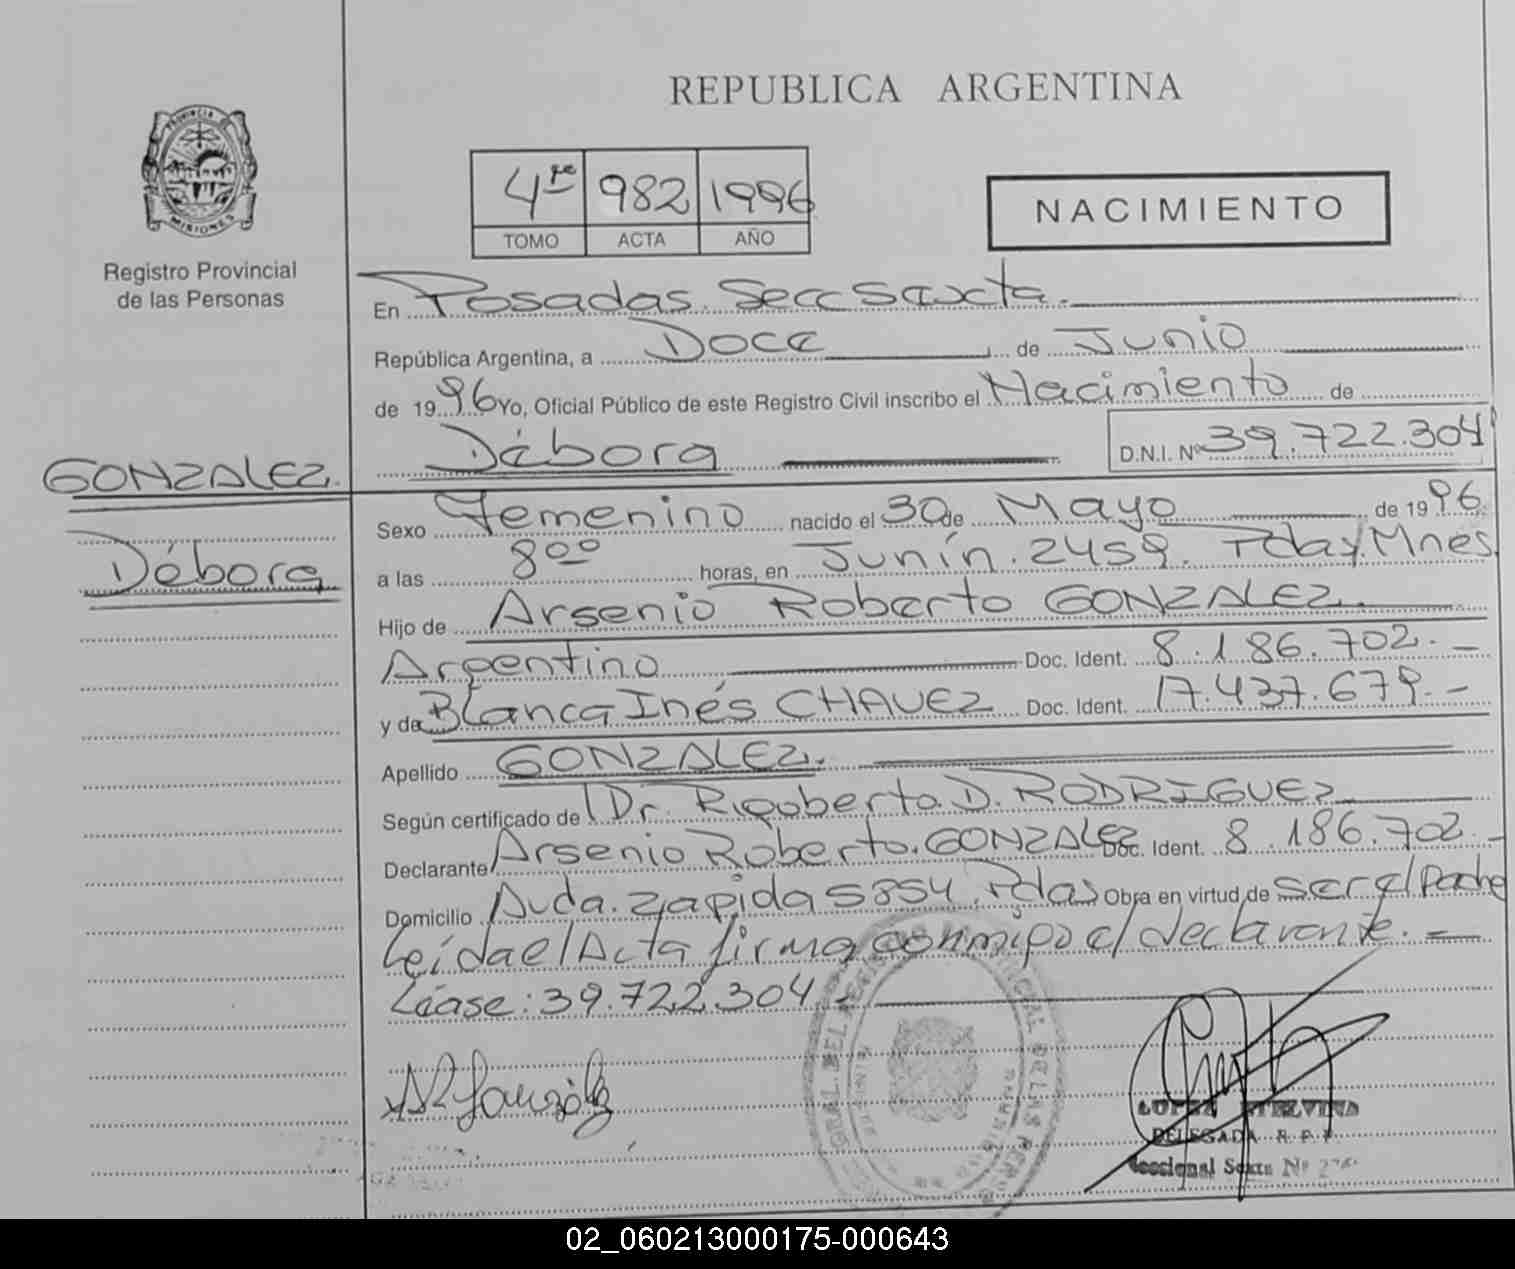 REPUBLICA ARGENTINA
PROVINCIA
MISIONES
Registro Provincial
de las Personas
4to 982 1996
TOMO ACTA AÑO
NACIMIENTO
En Posadas. Secc Sexta.
República Argentina, a Doce de Junio
de 1996 Yo, Oficial Público de este Registro Civil inscribo el Nacimiento de
Débora D.N.I. Nº 39.722.304
GONZALEZ.
Débora
Sexo Femenino nacido el 30 de Mayo de 1996.
a las 8 oo horas, en Junín. 2459. Pdas/Mnes
Hijo de Arsenio Roberto GONZALEZ.
Argentino Doc. Ident. 8.186.702.-
y de Blanca Inés CHAVEZ Doc. Ident. 17.437.679.-
Apellido GONZALEZ.
Según certificado de Dr. Rigoberto D. RODRIGUEZ
Declarante Arsenio Roberto. GONZALEZ Doc. Ident. 8.186.702.-
Domicilio Avda. Zapida 5854. Pdas Obra en virtud de ser el Padre
Leída el Acta firma conmigo el declarante.-
Léase: 39.722.304.-
LOPEZ ETELVINA
DELEGADA R. P. P.
Seccional Sexta Nº
02_060213000175-000643